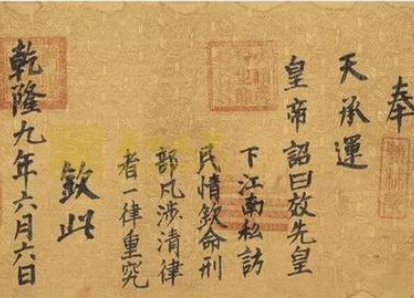 奉
天承運
皇帝詔曰效先皇
下江南私訪
民情欽命刑
部凡涉清律
者一律重究
欽此
乾隆九年六月六日